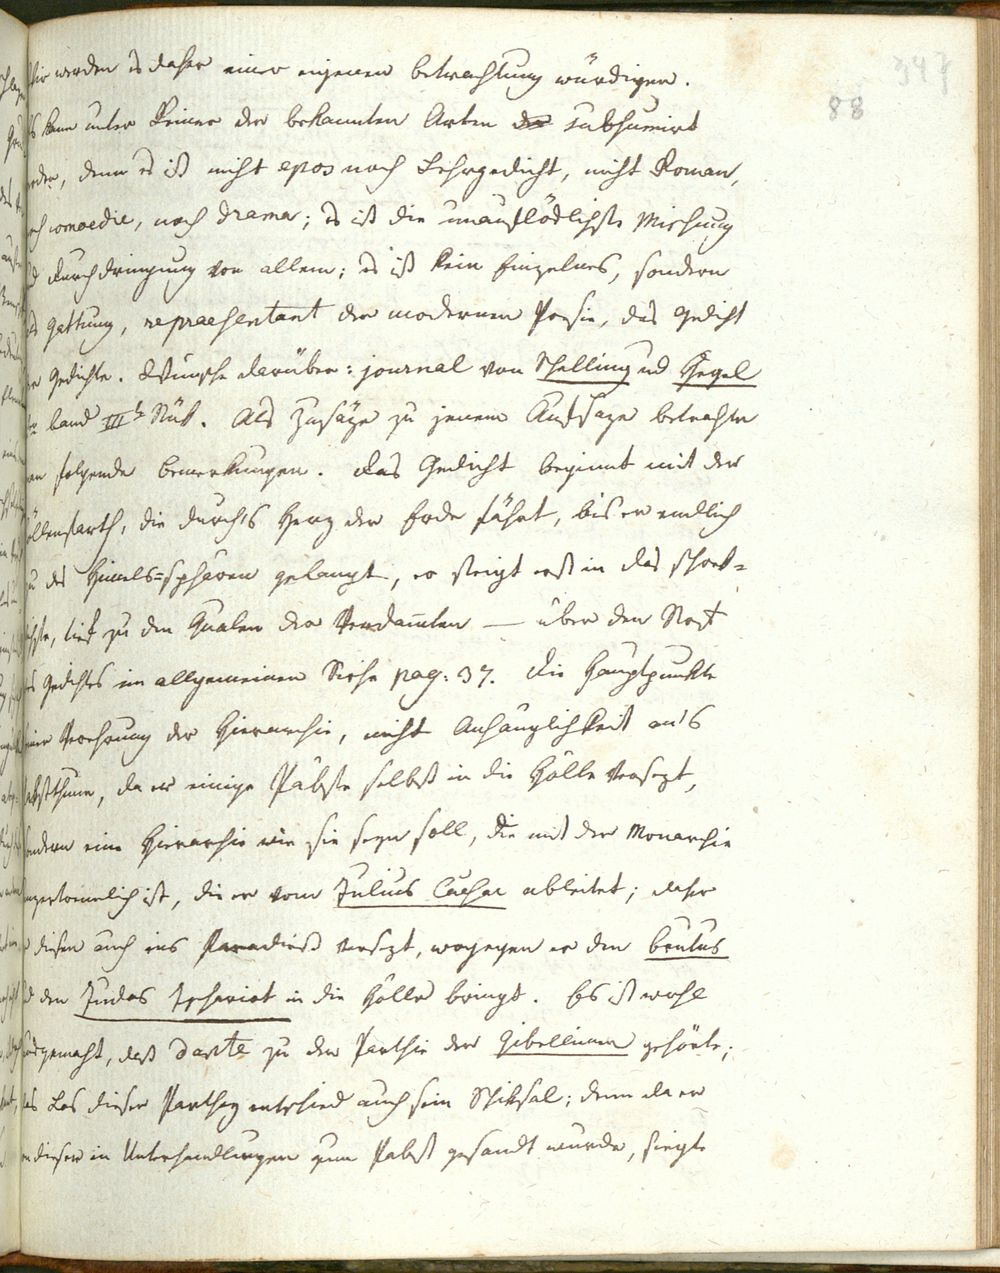 347
88
Wir werden es daher einer eigenen betrachtung würdigen.
Es kann unter keiner der bekannten Arten subsumirt
werden, denn es ist nicht epos noch Lehrgedicht, nicht Roman,
noch comoedie, noch drama; es ist die unauflöslichste Mischung
und durchdringung von allem; es ist kein Einzelnes, sondern
Gattung, repraesentant der modernen Poesie, das Gedicht
der Gedichte. darüber: journal von Schelling und Hegel
band IIIts Stük. Als Zusäze zu jenem Aufsaze betrachte
man folgende bemerkungen. Das Gedicht beginnt mit der
Höllenfarth, die durchs Herz der Erde fährt, bis er endlich
zu des Himels=sphären gelangt, er steigt erst in das schrek=
lichste, tief zu den Qualen der Verdamten — über den Rest
des Gedichts im allgemeinen Siehe pag: 37. die Hauptpunkte
eine Verehrung der Hierarchie, nicht Anhänglichkeit an's
Pabstthum, da er einige Päbste selbst in die Hölle versezt,
sondern eine Hierarchie wie sie seyn soll, die mit der Monarchie
unzertrennlich ist, die er vom Julius Caesar ableitet; daher
er diesen auch ins Paradies versezt, wogegen er den brutus
und den Judas Ischariot in die Hölle bringt. Es ist wohl
ausgemacht, daß dante zu der Parthie der Gibellinen gehörte;
das Los dieser Parthey entschied auch sein Schiksal; denn da er
von dieser in Unterhandlungen zum Pabst gesandt wurde, siegte